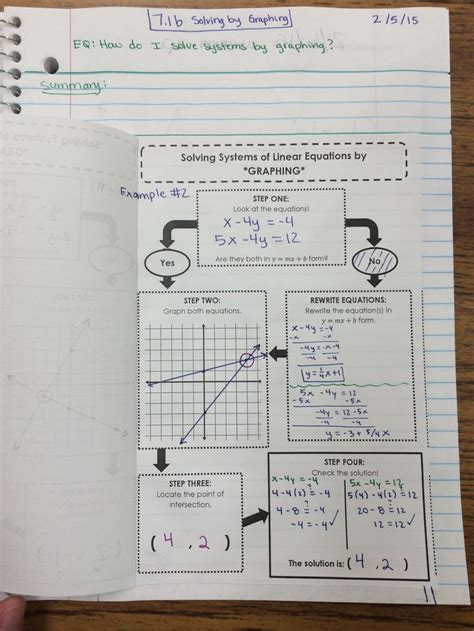 7.1b Solving by Graphing
2/5/15
EQ: How do I solve systems by graphing?
Summary:
Solving Systems of Linear Equations by
*GRAPHING*
Example #2
STEP ONE:
Look at the equations!
x - 4y = -4
5x - 4y = 12
Are they both in y = mx + b form?
Yes
No
STEP TWO:
Graph both equations.
REWRITE EQUATIONS:
Rewrite the equation(s) in
y = mx + b form.
x - 4y = -4
-x -x
-4y = -x - 4
-4 -4
y = 1/4 x + 1
5x - 4y = 12
-5x -5x
-4y = 12 - 5x
-4 -4
y = -3 + 5/4 x
STEP THREE:
Locate the point of
intersection.
( 4 , 2 )
STEP FOUR:
Check the solution!
x - 4y = -4
4 - 4(2) ?= -4
4 - 8 ?= -4
-4 = -4 ✓
5x - 4y = 12
5(4) - 4(2) ?= 12
20 - 8 ?= 12
12 = 12 ✓
The solution is: ( 4 , 2 )
11